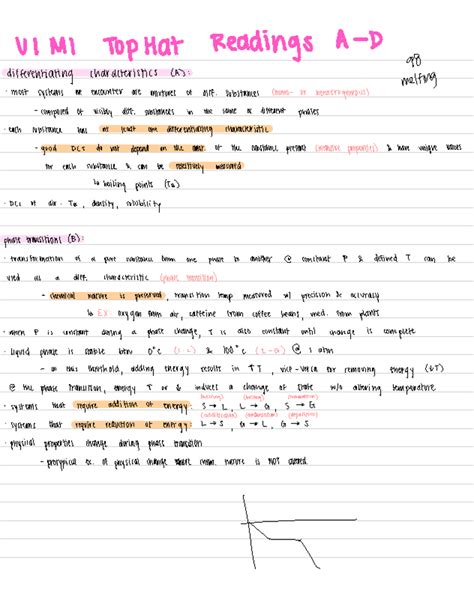 U1 M1 TopHat Readings A-D
98
melting
differentiating characteristics (A):
· most systems we encounter are mixtures of diff. substances (homo- or heterogeneous)
- composed of visibly diff. substances in the same or different phases
· each substance has at least one differentiating characteristic
- good DCs do not depend on the amt. of the substance present (intensive properties) & have unique values
for each substance & can be relatively measured
↳ boiling points (TB)
· DCs of air: TB, density, solubility
phase transitions (B):
· transformation of a pure substance from one phase to another @ constant P & defined T can be
used as a diff. characteristic (phase transition)
- chemical nature is preserved, transition temp measured w/ precision & accuracy
↳ Ex. oxygen from air, caffeine from coffee beans, med. from plants
· when P is constant during a phase change, T is also constant until change is complete
· liquid phase is stable btw 0°C & 100°C @ 1 atm
- at this threshold, adding energy results in ↑T, vice-versa for removing energy (↓T)
@ the phase transition, energy ↑ or ↓ induces a change of state w/o altering temperature
(melting) (boiling) (sublimation)
· systems that require addition of energy: S → L, L → G, S → G
· systems that require reduction of energy: L → S, G → L, G → S
· physical properties change during phase transition
- prototypical ex. of physical change chem. nature is NOT altered